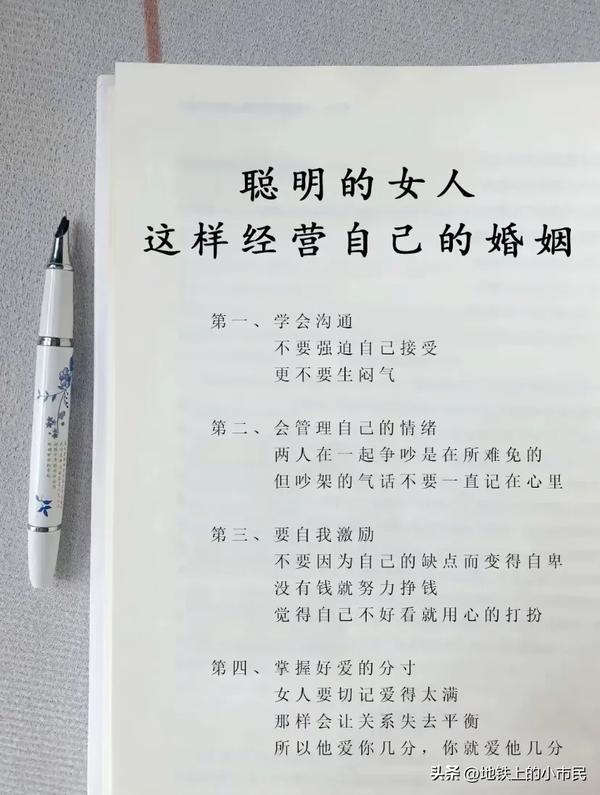 聪明的女人
这样经营自己的婚姻
第一、学会沟通
不要强迫自己接受
更不要生闷气
第二、会管理自己的情绪
两人在一起争吵是在所难免的
但吵架的气话不要一直记在心里
第三、要自我激励
不要因为自己的缺点而变得自卑
没有钱就努力挣钱
觉得自己不好看就用心的打扮
第四、掌握好爱的分寸
女人要切记爱得太满
那样会让关系失去平衡
所以他爱你几分，你就爱他几分
头条 @地铁上的小市民